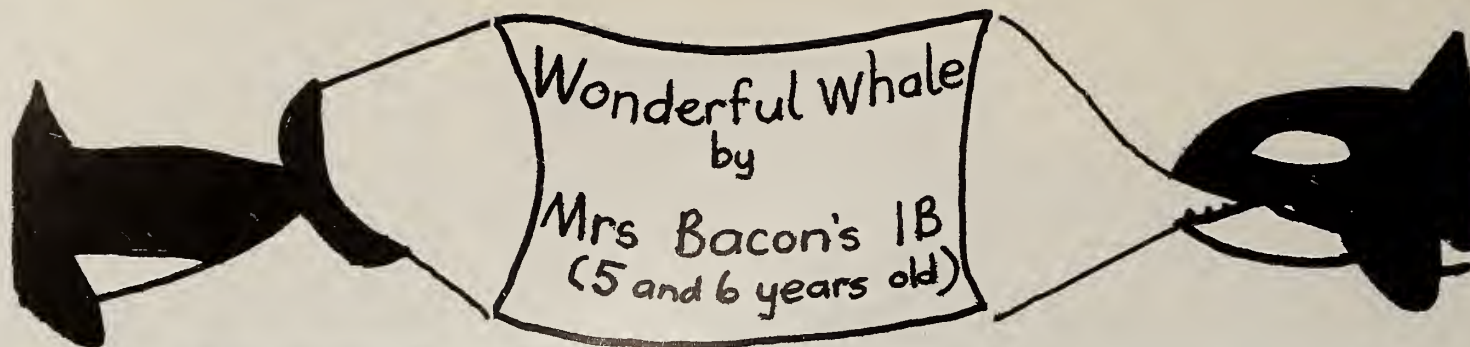 Wonderful Whale
by
Mrs Bacon's 1B
(5 and 6 years old)